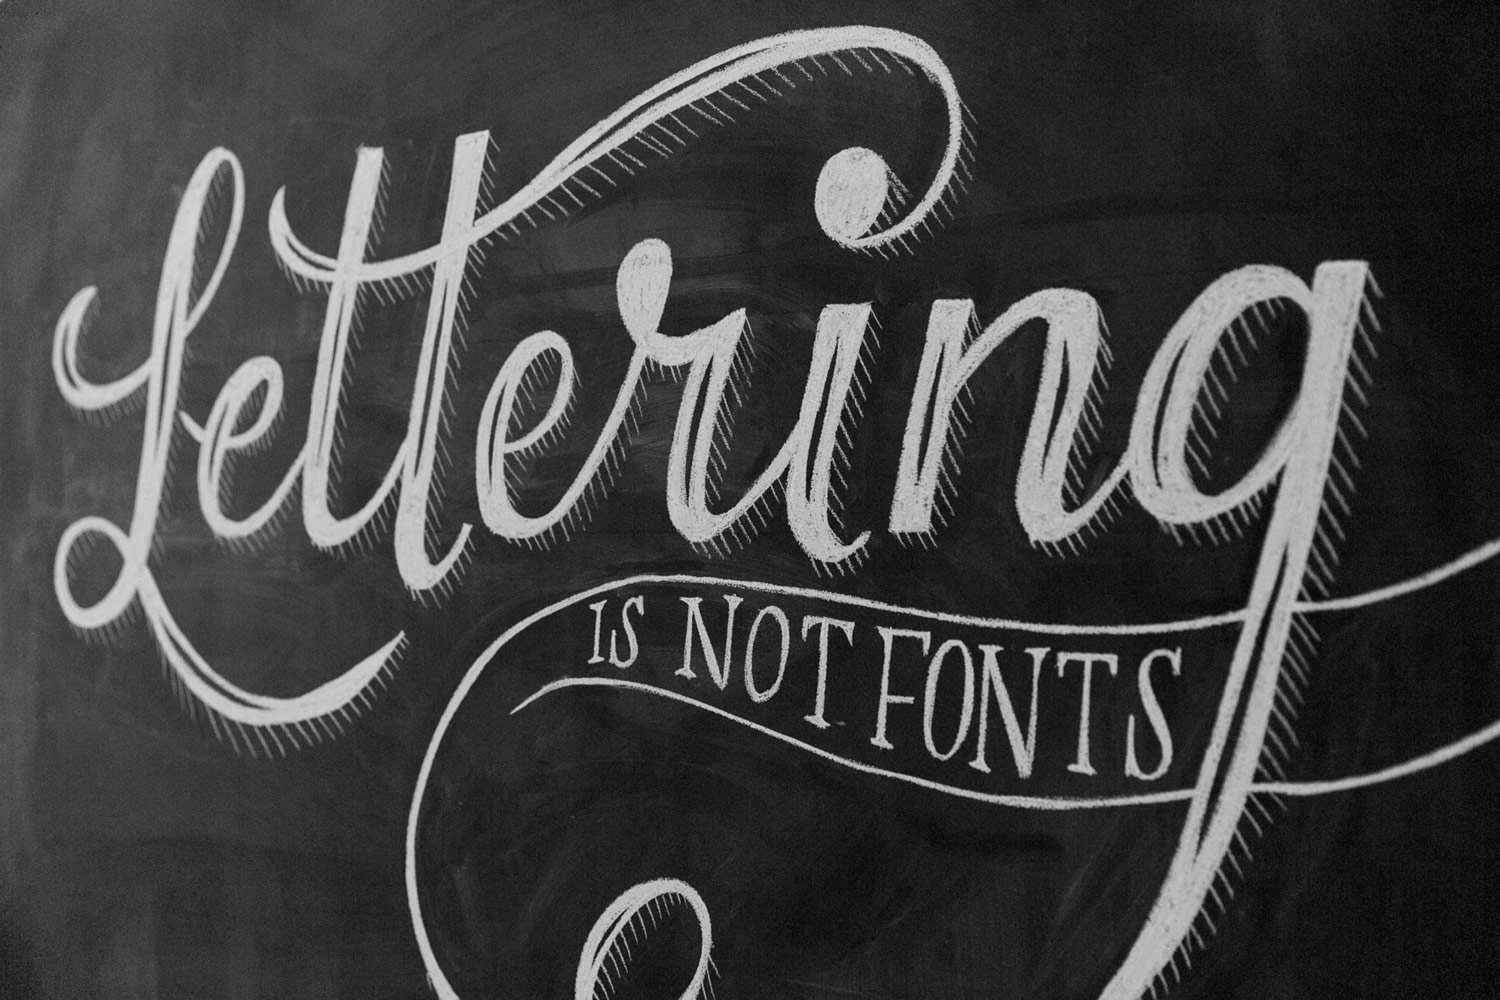 Lettering
IS NOT FONTS